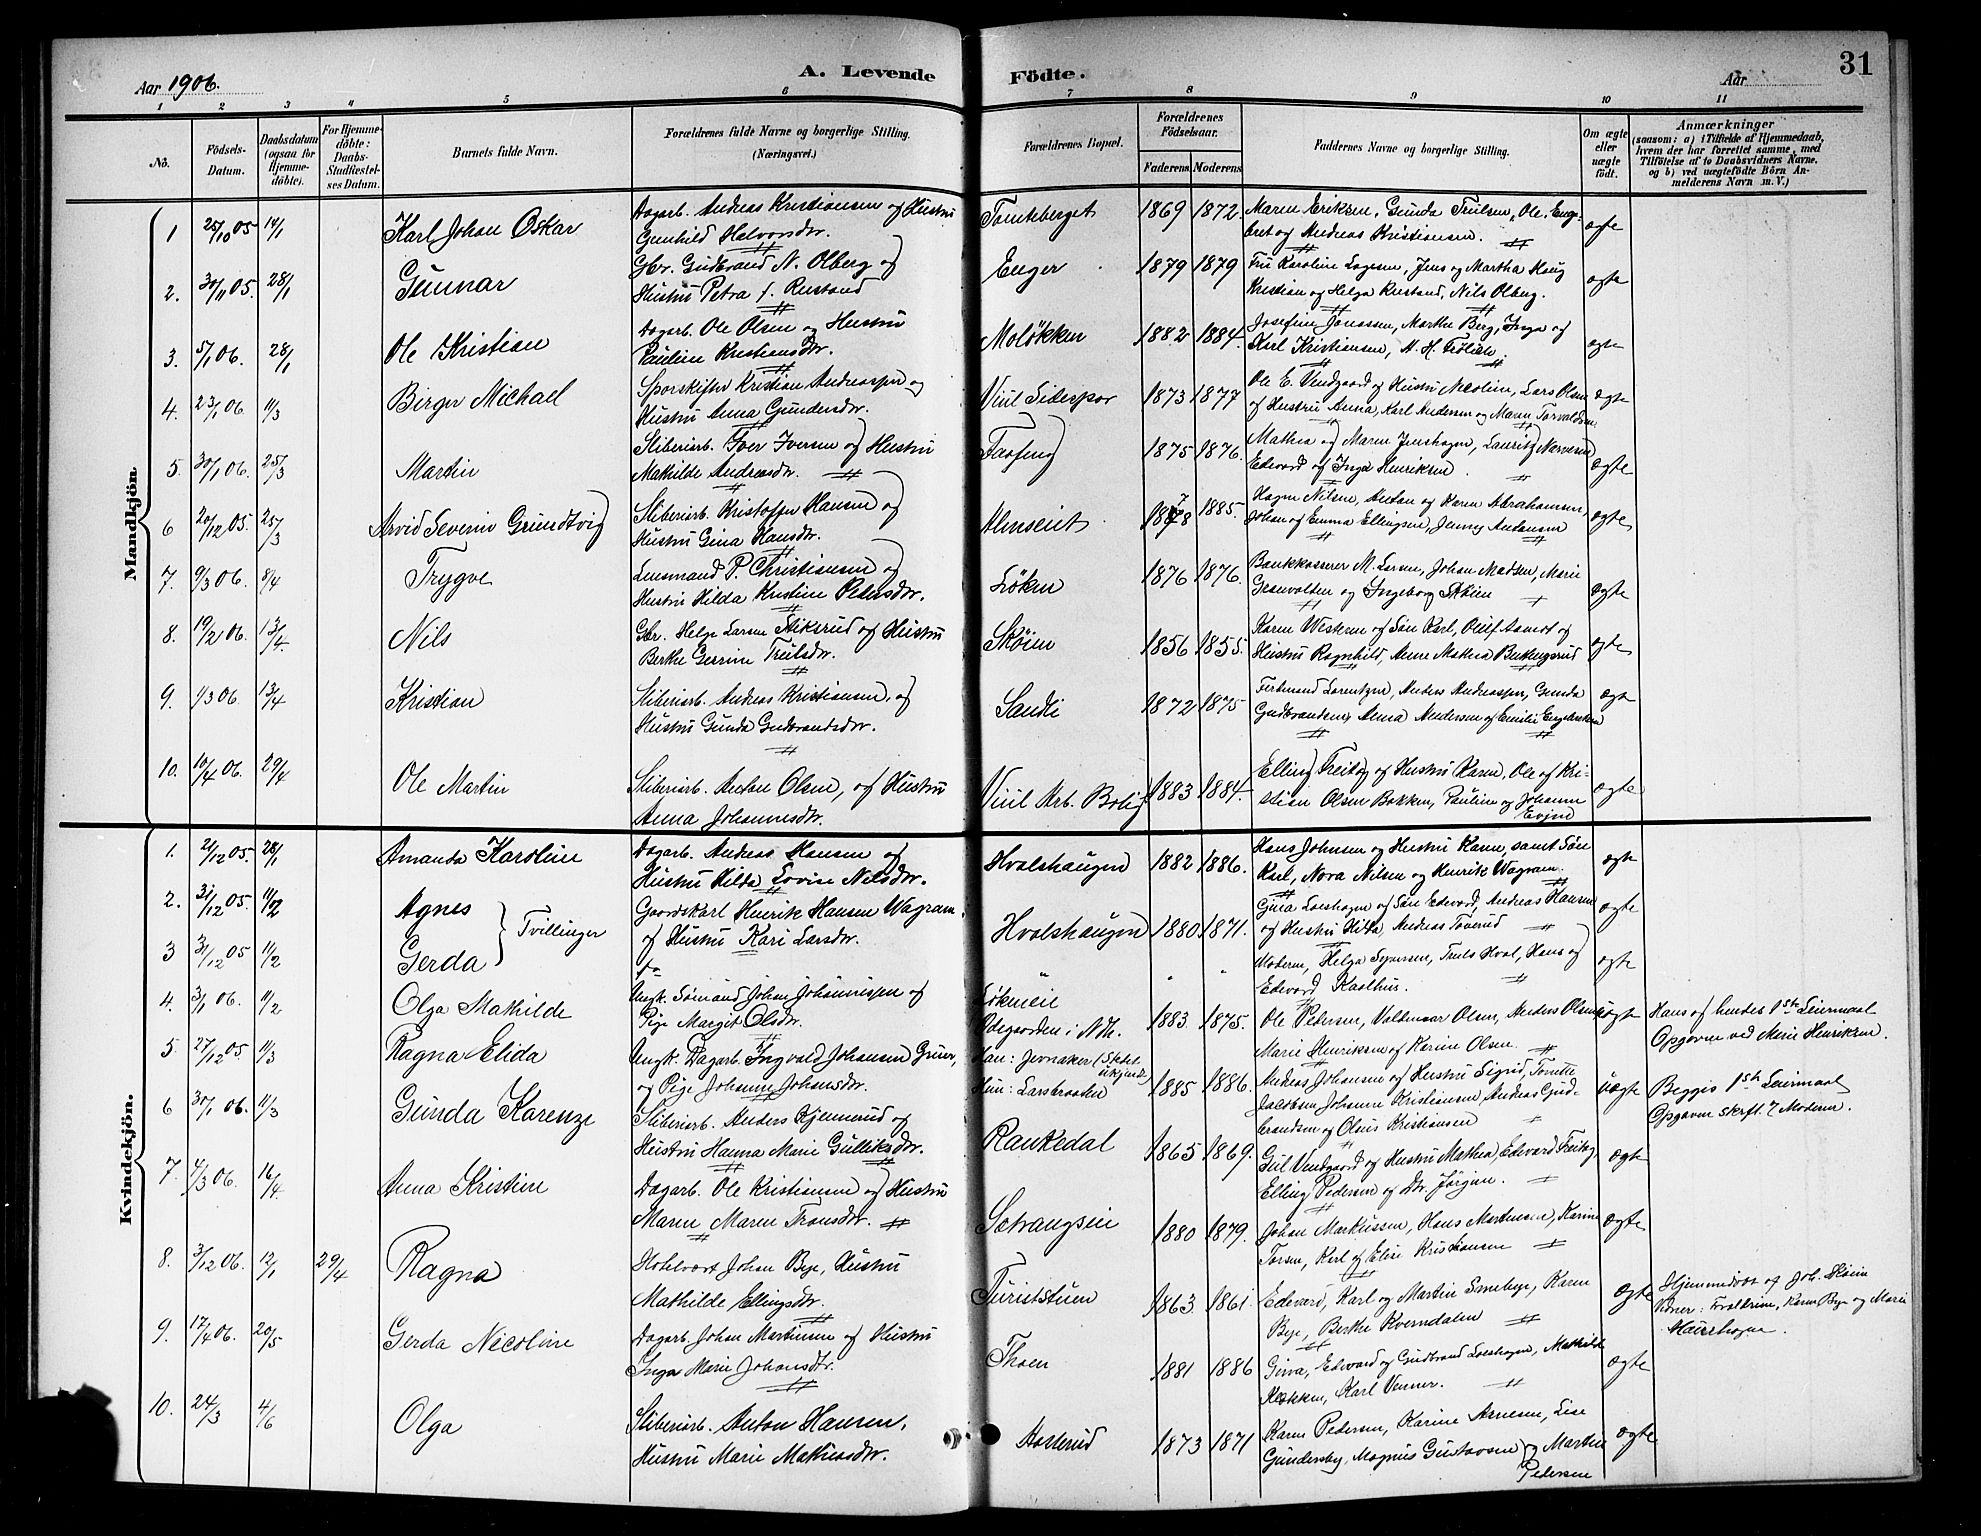 Aar 1906.
A. Levende
Födte.
Aar
31
1 2 3 4 5 6 7 8 9 10 11
No.
Födsels-
Datum.
Daabsdatum
(ogsaa for
Hjemme-
döbte).
For Hjemme-
döbte:
Daabs-
Stadfæstel-
ses Datum.
Barnets fulde Navn.
Forældrenes fulde Navne og borgerlige Stilling.
(Næringsvei.)
Forældrenes Bopæl.
Forældrenes
Födselsaar.
Faderens. Moderens.
Faddernes Navne og borgerlige Stilling.
Om ægte
eller
uægte
födt.
Anmærkninger
(saasom: a) i Tilfælde af Hjemmedaab,
hvem der har forrettet samme, med
Tilföielse af to Daabsvidners Navne.
og b) ved uægtefödte Börn An-
melderens Navn m. V.)
Mandkjön
1 25/10 05 14/1 Karl Johan Oskar
Dagarb. Andreas Kristiansen og Hustru
Gunhild Halvorsdr.
Tømteberget 1869 1872
Maren Eriksen, Gunda Trulsen, Ole, Enge-
bret og Andreas Kristiansen.
ægte
2. 30/11 05. 28/1 Gunnar
Gbr. Gudbrand N. Olberg og
Hustru Petra f. Rustand
Enger 1879 1879
Fru Karoline Lagesen, Jens og Martha Haug
Kristian og Helga Rustand, Nils Olberg.
ægte
3. 5/1 06. 28/1 Ole Kristian
Dagarb. Ole Olsen og Hustru
Pauline Kristiansdr.
Moløkken 1882 1884.
Josefine Jonassen, Marthe Berg, Inga og
Karl Kristiansen,
ægte
4. 23/1 06. 11/3 Birger Michael
Sporskifter Kristian Andreassen og
Hustru Anna Gundersdr.
Viul Sidespor 1873 1877
Ole E. Vendgaard og Hustru Nicoline, Lars Olsen
og Hustru Anna, Karl Andersen og Maren Torvaldsen
ægte
5. 30/1 06. 25/3 Martin
Sliberiarb. Iver Iversen og Hustru
Mathilde Andreasdr.
1875 1876.
Mathea og Maren Jenshagen, Lauritz Narvesen
Edvard og Inga Henriksen
ægte
6 20/12 05. 25/3 Arvid Severin Grundtvig
Sliberiarb. Kristoffer Hansen og
Hustru Gina Hansdr.
Almseiet 1878 1885.
Hagen Nilsen, Anton og Karen Abrahamsen,
Johan og Emma Ellingsen, Jenny Antonsen
ægte
7. 9/3 06. 8/4 Trygve
Lensmand P. Christiansen og
Hustru Hilda Kristine Pedersdr.
Løken 1876 1876.
Bankkasserer M. Larsen, Johan Madsen, Marie
Granvolden og Ingeborg Skøien
ægte
8. 19/2 06. 13/4 Nils
Gbr. Helge Larsen Stiksrud og Hustru
Berthe Gerrine Trulsdr.
Skøien 1856 1855.
Karen Western og Søn Karl, Oluf Aamot og
Hustru Ragnhild, Anne Mathea Buttingsrud
ægte
9. 1/3 06. 13/4 Kristian
Sliberiarb. Andreas Kristiansen, og
Hustru Gunda Gudbrandsdr.
Sandli 1872 1875
Ferdinand Lorentzen, Anders Andreassen, Gunda
Gudbrandsen, Anna Andersen og Emilie Engebretsen
ægte
10. 10/4 06. 29/4 Ole Martin
Sliberiarb. Anton Olsen, og Hustru
Anna Johannesdr.
Viul Arb. Bolig 1883 1884.
Elling Freitag og Hustru Karen, Ole og Kri-
stian Olsen Bakken, Pauline og Johanne
Evjend
ægte
Kvindekjön.
1. 21/12 05. 28/1 Amanda Karoline
Dagarb. Andreas Hansen og
Hustru Hilda Lovise Nilsdr.
Hvalshaugen 1882 1886.
Hans Johnsen og Hustru Karen, samt Søn
Karl, Nora Nilsen og Henrik Wagram.
ægte
2. 31/12 05. 11/2 Agnes
Tvillinger
Gaardskarl Henrik Hansen Wagram,
og Hustru Kari Larsdr.
Hvalshaugen 1880 1871.
Gina Loeshagen og Søn Edvard, Andreas Hansen
og Hustru Hilda, Andreas Toverud
ægte
3 31/12 05 11/2 Gerda
Do
" " "
Moderen, Helga Syversen, Truls Hval, Hans og
Edvard Kaslhus.
ægte
4. 3/1 06. 11/2 Olga Mathilde
Ungk. Sømand Johan Johannessen og
Pige Margit Olsdr.
Løkeneie
Ødegaarden i Ndh. 1883. 1875.
Ole Pedersen, Valdemar Olsen, Anders Olsen
Marie Henriksen og Karine Olsen.
uægte
Hans og hendes 1ste Leiermaal
Opgaven ved Marie Henriksen.
5 27/12 05. 11/3 Ragna Elida
Ungk. Dagarb. Ingvald Johansen Gruer,
og Pige Johanne Johansdr.
Han: Jevnaker (Sktel.
ukjend)
Hun: Larsbraaten 1885 1886.
Andreas Johansen og Hustru Sigrid, Tomette
Jacobsen Johanne Kristiansen, Andreas Gud-
brandsen og Olaus Kristiansen
uægte
Begges 1ste Leiermaal
Opgaven skrftl. f Moderen.
6 30/1 06. 11/3 Gunda Karenze
Sliberiarb. Anders Hjemmerud og
Hustru Hanna Marie Gulliksdr.
Rankedal 1865 1869.
Gul Vendgaard og Hustru Mathea, Edvard Freitag,
Elling Pedersen og Dtr. Jørgine.
ægte
7. 4/3 06. 16/4 Anna Kristine
Dagarb. Ole Kristiansen og Hustru
Maren Maren Tronsdr.
Sørangseie 1880 1879.
Johan Markussen, Hans Martinsen, Karine
Torsen, Karl og Elise Kristiansen
ægte
8. 3/12 06. 12/1 29/4 Ragna
Hotelvært Johan Bye, Hustru
Mathilde Ellingsdr.
Turiststuen 1863 1861.
Edvard, Karl og Martin Smebye, Karen
Bye, Berthe Kverndalen
ægte
Hjemmedøbt af Joh. Skøien
Vidner: Forældrene, Karen Bye og Marie
Haurshagen.
9. 17/4 06. 20/5 Gerda Nicoline
Dagarb. Johan Martinsen og Hustru
Inga Marie Johansdtr.
Thoen 1881 1886
Gina, Edvard og Gudbrand Loeshagen, Mathilde
Kløkken, Karl Venner.
ægte
10. 24/3 4/6 Olga
Sliberiarb. Anton Hansen,
Hustru Marie Mathiasdr.
Aasterud 1873 1871
Karen Pedersen, Karine Arnesen, Lise
Gundersby, Magnus Gustavsen og Martin
Pedersen
ægte